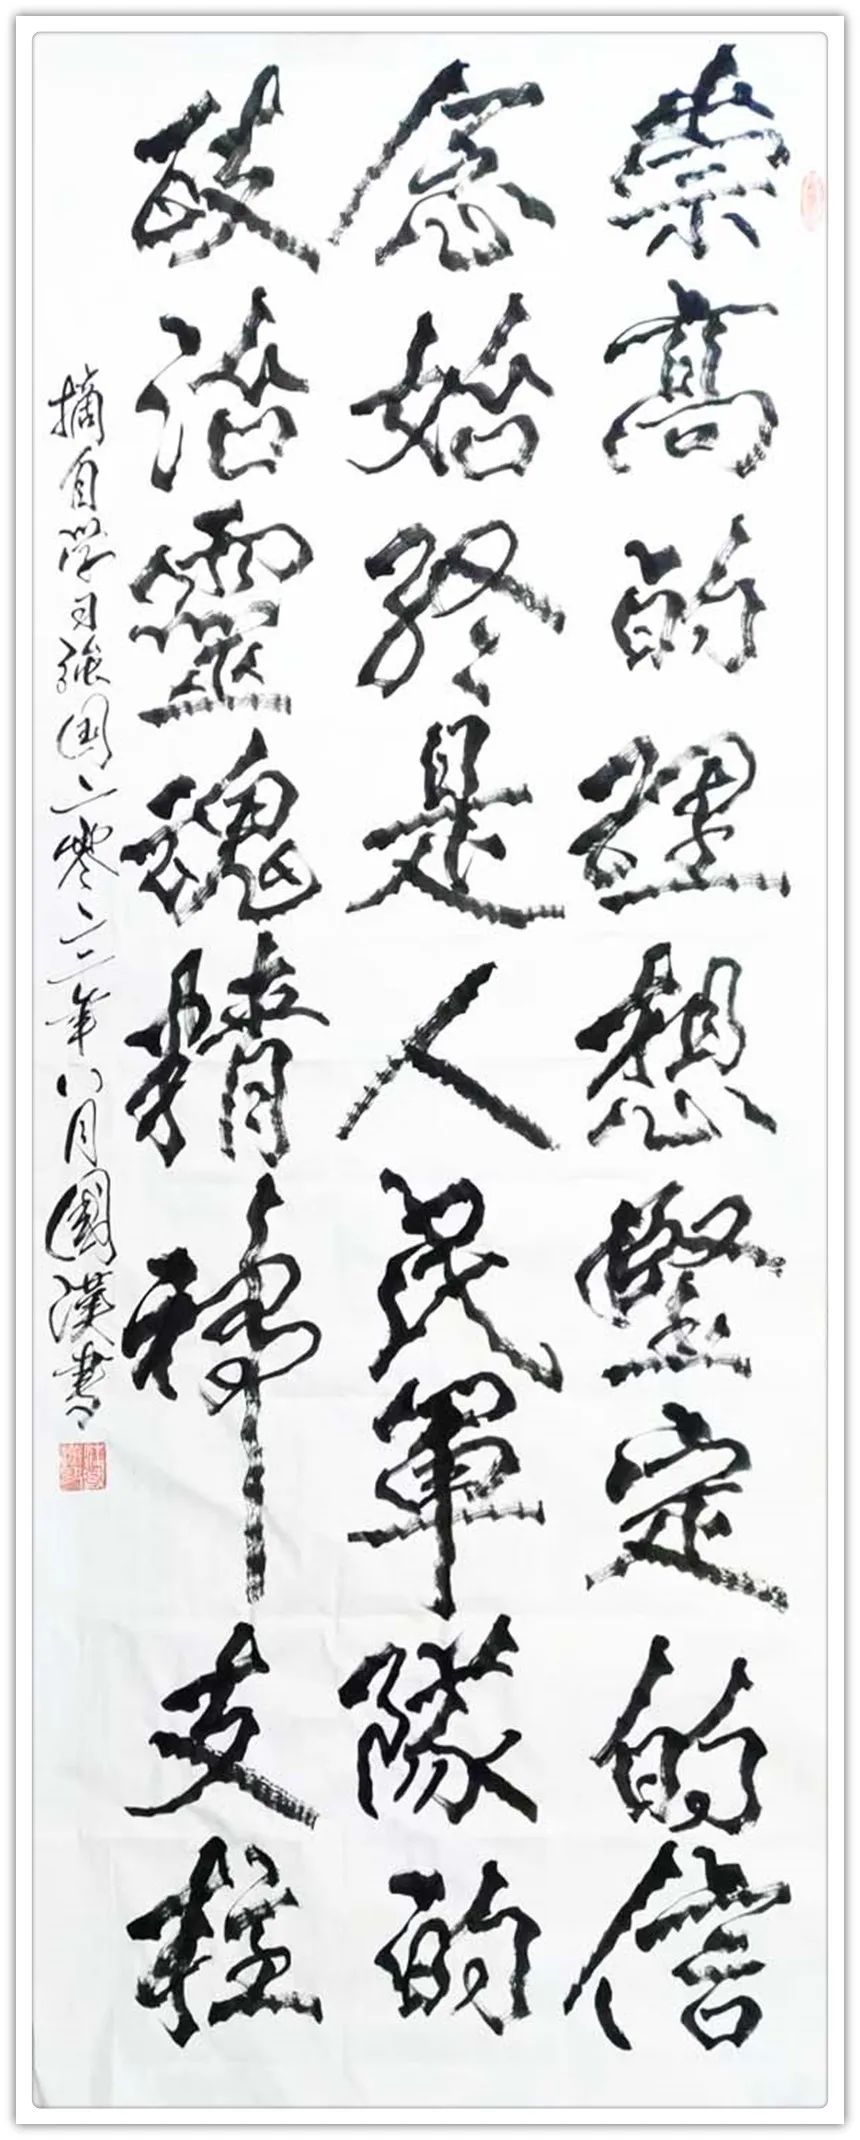 崇高的理想坚定的信
念始终是人民军队的
政治靈魂精神支柱
摘自学习强国二零二二年八月國漢书